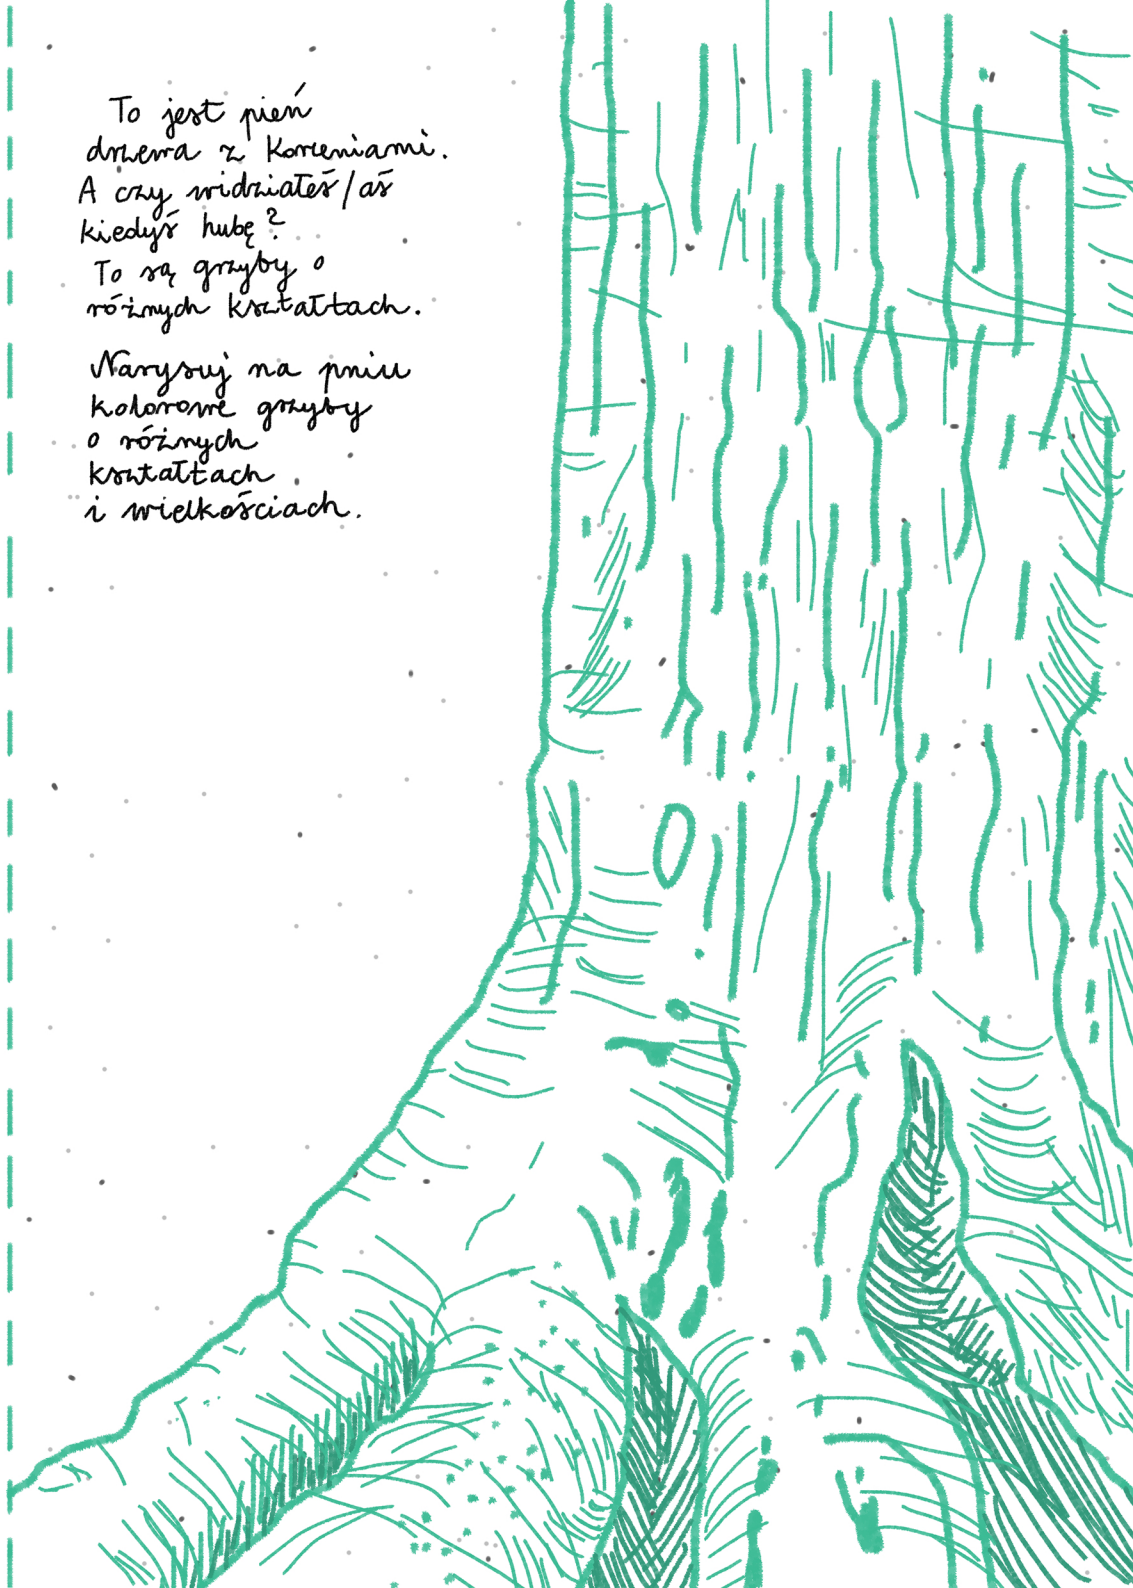 To jest pień
drzewa z korzeniami.
A czy widziałeś/aś
kiedyś hubę?
To są grzyby o
różnych kształtach.
Narysuj na pniu
kolorowe grzyby
o różnych
kształtach
i wielkościach.